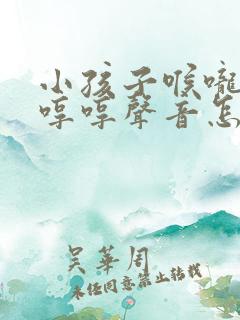 小孩子喉嚨
哼哼聲音怎
吴華周
未任同意禁止轉載